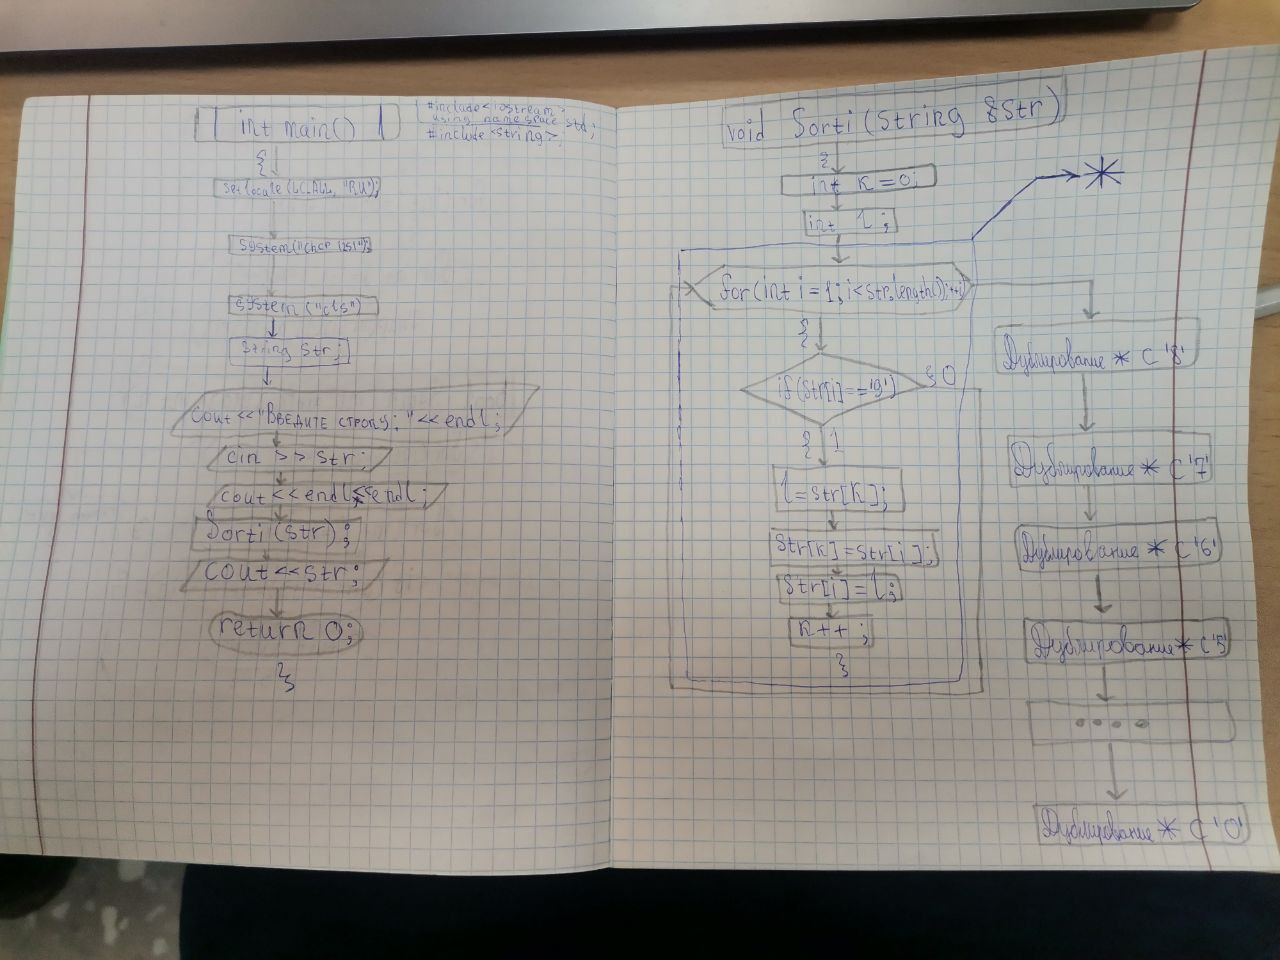 int main()
#include <iostream>;
using namespace std;
#include <string>;
{
setlocale(LC_ALL, "RU");
system("chcp 1251");
system("cls")
string str;
cout<<"Введите строку: "<<endl;
cin >> str;
cout<<endl<<endl;
Sorti(str);
cout<<str;
return 0;
}
void Sorti(String &Str)
{
int k=0;
int l;
*
for(int i=1;i<str.length();i++)
{
if(Str[i]=='9')
0
{ 1
l=str[k];
Str[k]=Str[i];
Str[i]=l;
k++;
}
Дублирование * с '8'
Дублирование * с '7'
Дублирование * с '6'
Дублирование * с '5'
....
Дублирование * с '0'